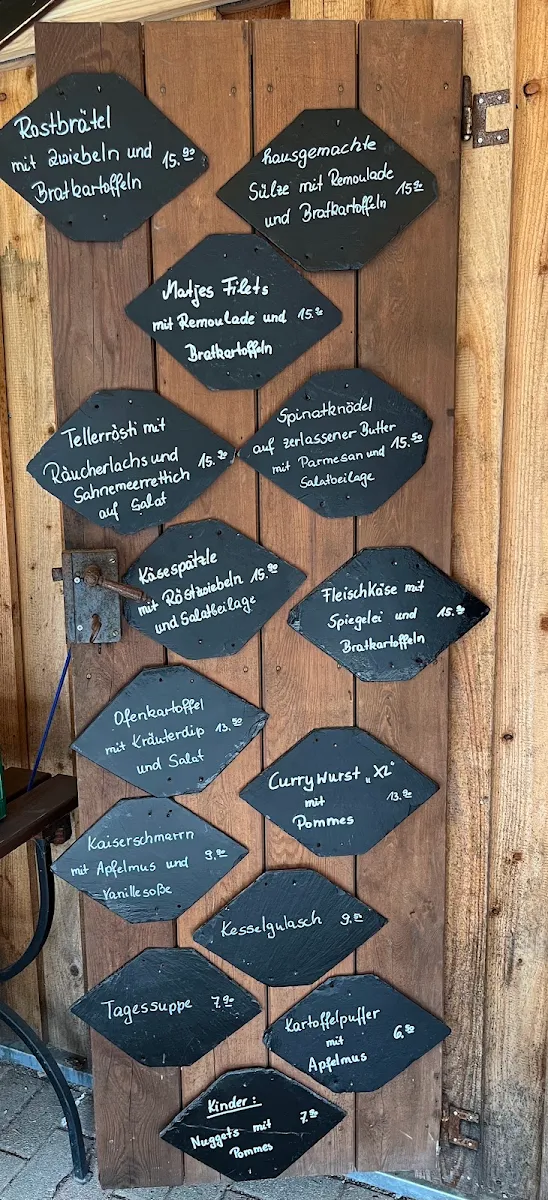 Rostbrätel
mit Zwiebeln und 15.90
Bratkartoffeln
hausgemachte
Sülze mit Remoulade 15.90
und Bratkartoffeln
Matjes Filets
mit Remoulade und
Bratkartoffeln
Tellerrösti mit
Räucherlachs und
Sahnemeerrettich
auf Salat
Spinatknödel
auf zerlassener Butter 15.50
mit Parmesan und
Salatbeilage
Käsespätzle
mit Röstzwiebeln 15.00
und Salatbeilage
Fleischkäse mit
Spiegelei und
Bratkartoffeln
Ofenkartoffel
mit Kräuterdip 13.50
und Salat
Currywurst „XL"
mit
Pommes
Kaiserschmarrn
mit Apfelmus und
Vanillesoße
Kesselgulasch
Tagessuppe 7.90
Kartoffelpuffer
mit
Apfelmus
Kinder:
Nuggets mit
Pommes